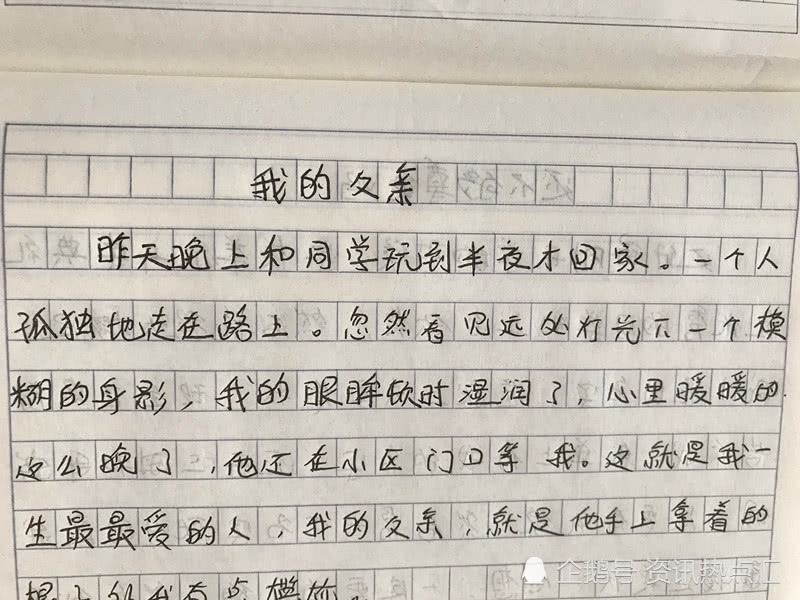 我的父亲
昨天晚上和同学玩到半夜才回家。一个人
孤独地走在路上。忽然看见远处灯光下一个模
糊的身影，我的眼眸顿时湿润了，心里暖暖的.
这么晚了，他还在小区门口等我。这就是我一
生最最爱的人，我的父亲，就是他手上拿着的
我有点尴尬。
企鹅号 资讯热点汇